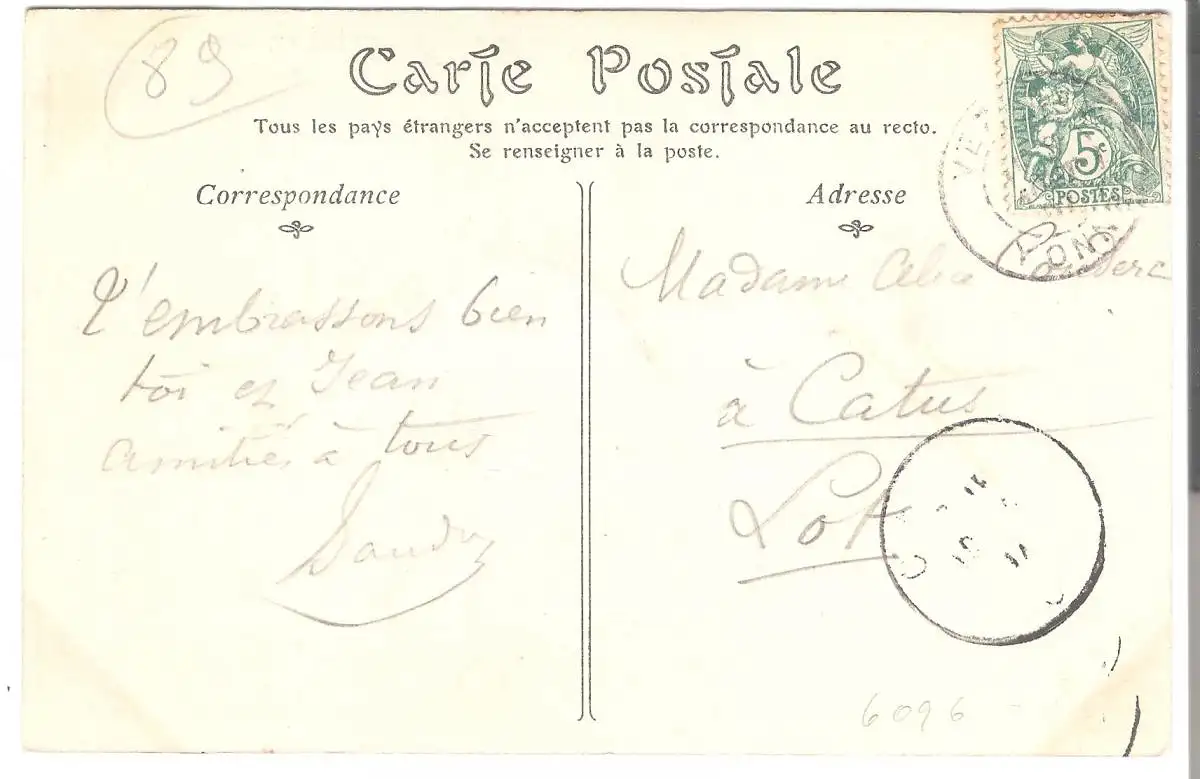 89
Carte Postale
Tous les pays étrangers n'acceptent pas la correspondance au recto.
Se renseigner à la poste.
Correspondance
T'embrassons bien
toi et Jean
amitiés à tous
Adresse
5c
POSTES
YONNE
Madame
à Catus
Lot
6096